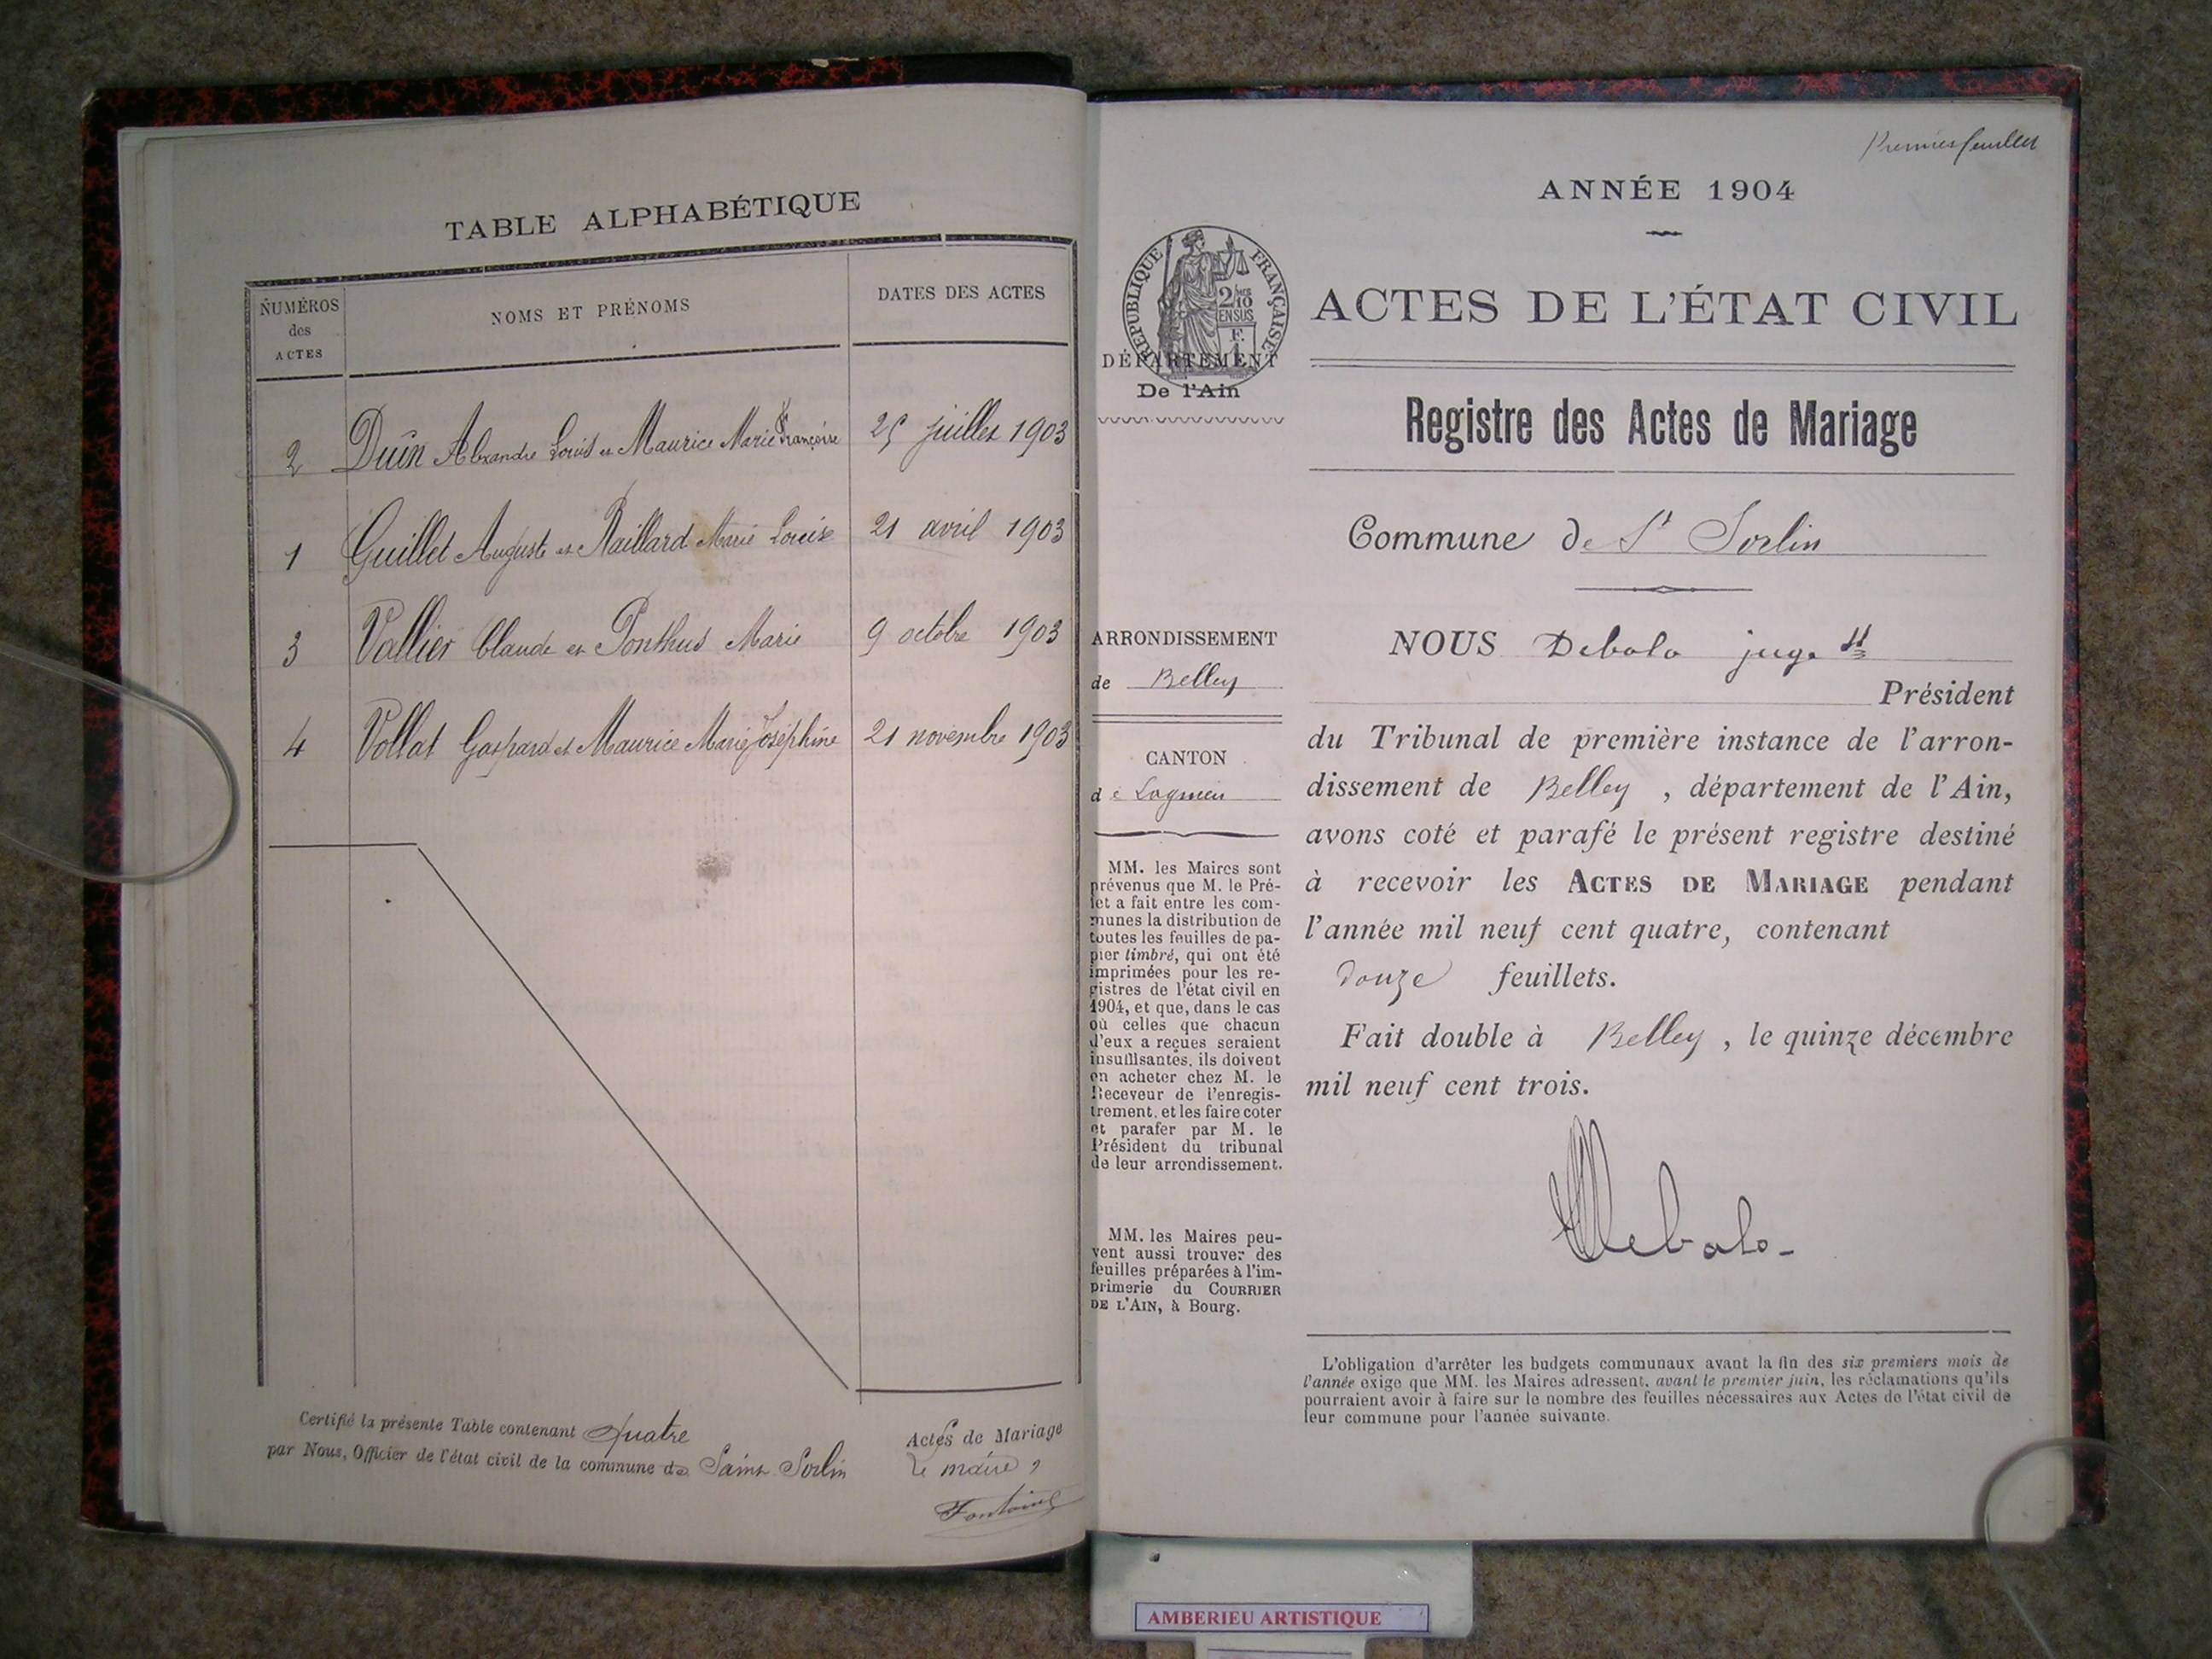 TABLE ALPHABÉTIQUE
NUMÉROS
des
ACTES
NOMS ET PRÉNOMS
DATES DES ACTES
2 Duin Alexandre Louis et Maurice Marie Françoise 25 juillet 1903
1 Guillet Auguste et Raillard Marie Louise 21 avril 1903
3 Vallier Claude et Ponthus Marie 9 octobre 1903
4 Vollat Gaspard et Maurice Marie Joséphine 21 novembre 1903
Certifié la présente Table contenant Quatre Actes de Mariage
par Nous, Officier de l'état civil de la commune de Saint Sorlin
Le maire,
Fontaine
Premier feuillet
ANNÉE 1904
RÉPUBLIQUE FRANÇAISE
2/10
EN SUS
F.
1
ACTES DE L'ÉTAT CIVIL
DÉPARTEMENT
De l'Ain
Registre des Actes de Mariage
Commune de St Sorlin
ARRONDISSEMENT
de Belley
CANTON
de Lagnieu
MM. les Maires sont
prévenus que M. le Pré-
fet a fait entre les com-
munes la distribution de
toutes les feuilles de pa-
pier timbré, qui ont été
imprimées pour les re-
gistres de l'état civil en
1904, et que, dans le cas
où celles que chacun
d'eux a reçues seraient
insuffisantes, ils doivent
en acheter chez M. le
Receveur de l'enregis-
trement, et les faire coter
et parafer par M. le
Président du tribunal
de leur arrondissement.
MM. les Maires peu-
vent aussi trouver des
feuilles préparées à l'im-
primerie du COURRIER
DE L'AIN, à Bourg.
NOUS Debolo juge
Président
du Tribunal de première instance de l'arron-
dissement de Belley, département de l'Ain,
avons coté et parafé le présent registre destiné
à recevoir les ACTES DE MARIAGE pendant
l'année mil neuf cent quatre, contenant
douze feuillets.
Fait double à Belley, le quinze décembre
mil neuf cent trois.
Debolo
L'obligation d'arrêter les budgets communaux avant la fin des six premiers mois de
l'année exige que MM. les Maires adressent, avant le premier juin, les réclamations qu'ils
pourraient avoir à faire sur le nombre des feuilles nécessaires aux Actes de l'état civil de
leur commune pour l'année suivante.
AMBERIEU ARTISTIQUE